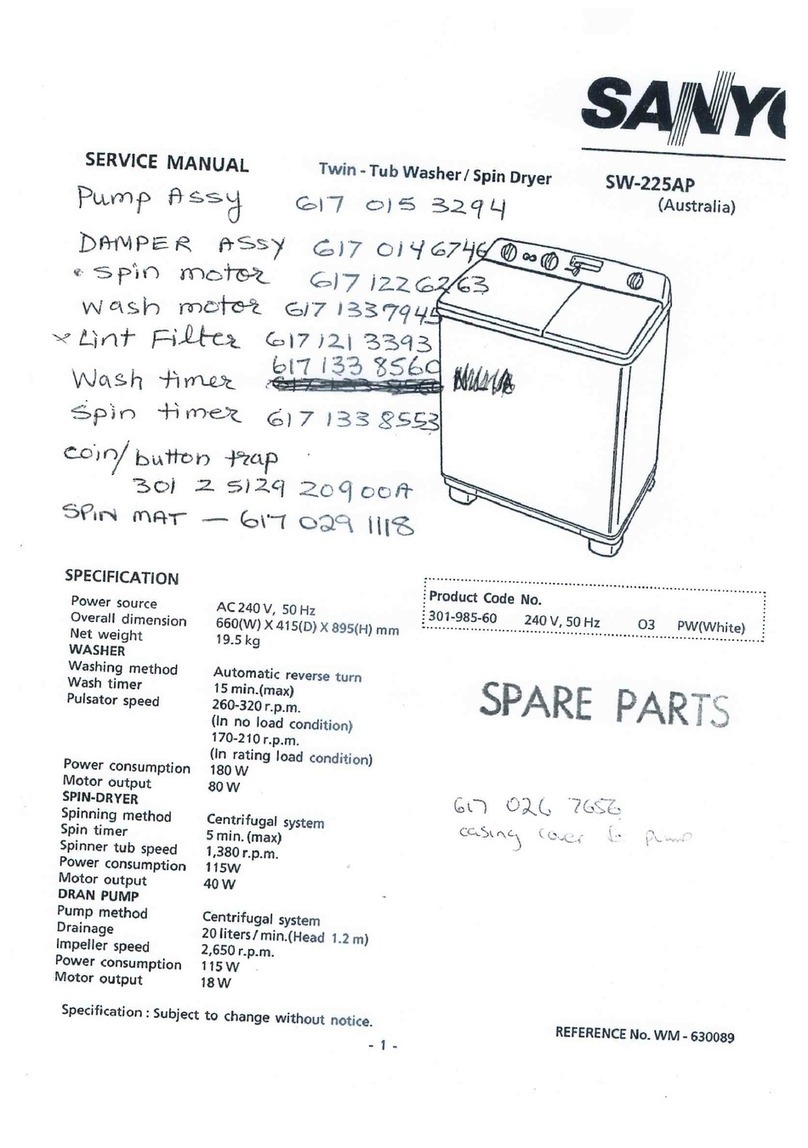 SANYO
SERVICE MANUAL Twin - Tub Washer / Spin Dryer SW-225AP
(Australia)
Pump Assy 617 015 3294
DAMPER ASSY 617 014 6746
• Spin motor 617 122 6263
Wash motor 617 133 7945
x Lint Filter 617 121 3393
617 133 8560
Wash timer
Spin timer 617 133 8553
coin/button trap
301 2 5129 20900A
SPIN MAT — 617 029 1118
SPECIFICATION
Power source AC 240 V, 50 Hz
Overall dimension 660(W) X 415(D) X 895(H) mm
Net weight 19.5 kg
WASHER
Washing method Automatic reverse turn
Wash timer 15 min.(max)
Pulsator speed 260-320 r.p.m.
(In no load condition)
170-210 r.p.m.
(In rating load condition)
Power consumption 180 W
Motor output 80 W
SPIN-DRYER
Spinning method Centrifugal system
Spin timer 5 min. (max)
Spinner tub speed 1,380 r.p.m.
Power consumption 115W
Motor output 40 W
DRAN PUMP
Pump method Centrifugal system
Drainage 20 liters / min.(Head 1.2 m)
Impeller speed 2,650 r.p.m.
Power consumption 115 W
Motor output 18 W
Specification : Subject to change without notice.
Product Code No.
301-985-60 240 V, 50 Hz O3 PW(White)
SPARE PARTS
617 026 7656
casing cover to pump
- 1 -
REFERENCE No. WM - 630089